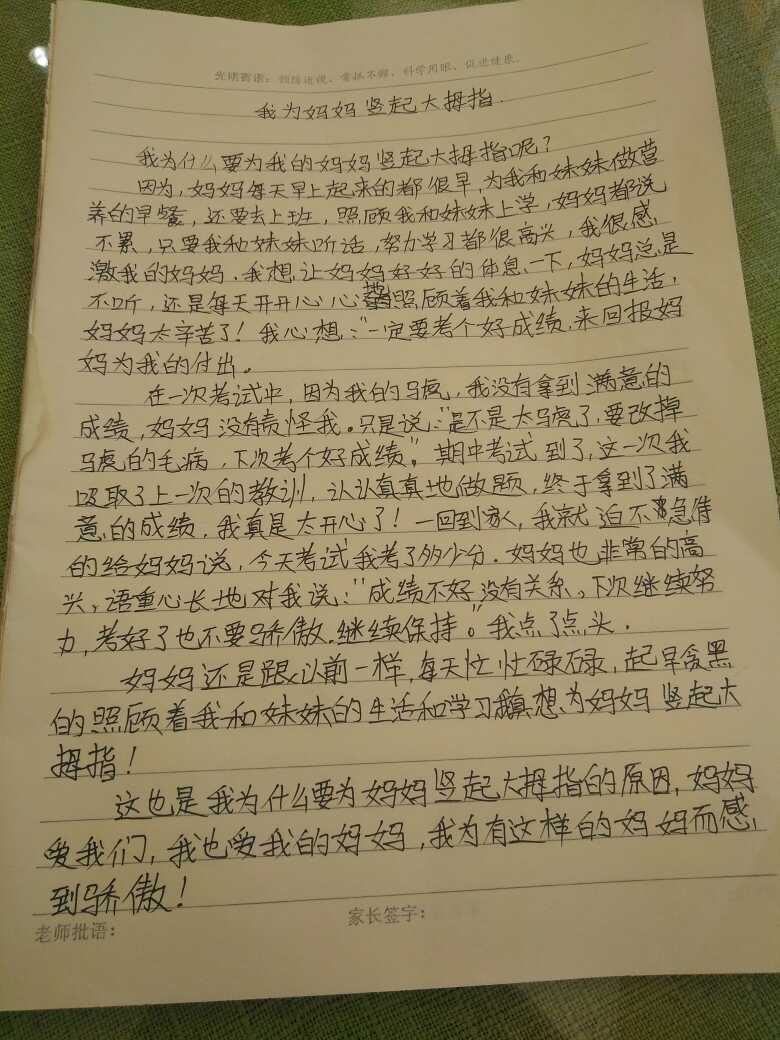 光明寄语：预防近视、常抓不懈、科学用眼、促进健康。
我为妈妈竖起大拇指.
我为什么要为我的妈妈竖起大拇指呢？
因为，妈妈每天早上起来的都很早，为我和妹妹做营
养的早餐，还要去上班，照顾我和妹妹上学，妈妈都说
不累，只要我和妹妹听话，努力学习都很高兴，我很感
激我的妈妈．我想让妈妈好好的体息一下，妈妈总是
不听，还是每天开开心心照顾着我和妹妹的生活，
妈妈太辛苦了！我心想：“一定要考个好成绩，来回报妈
妈为我的付出。
在一次考试中，因为我的马虎，我没有拿到满意的
成绩，妈妈没有责怪我。只是说：“是不是太马虎了，要改掉
马虎的毛病，下次考个好成绩”。期中考试到了，这一次我
吸取了上一次的教训，认认真真地做题，终于拿到了满
意的成绩，我真是太开心了！一回到家，我就迫不急待
的给妈妈说，今天考试我考了多少分．妈妈也非常的高
兴，语重心长地对我说：“成绩不好没有关系，下次继续努
力，考好了也不要骄傲．继续保持。”我点了点头．
妈妈还是跟以前一样，每天忙忙碌碌，起早贪黑
的照顾着我和妹妹的生活和学习我真想为妈妈竖起大
拇指！
这也是我为什么要为妈妈竖起大拇指的原因，妈妈
爱我们，我也爱我的妈妈，我为有这样的妈妈而感
到骄傲！
家长签字：
老师批语：